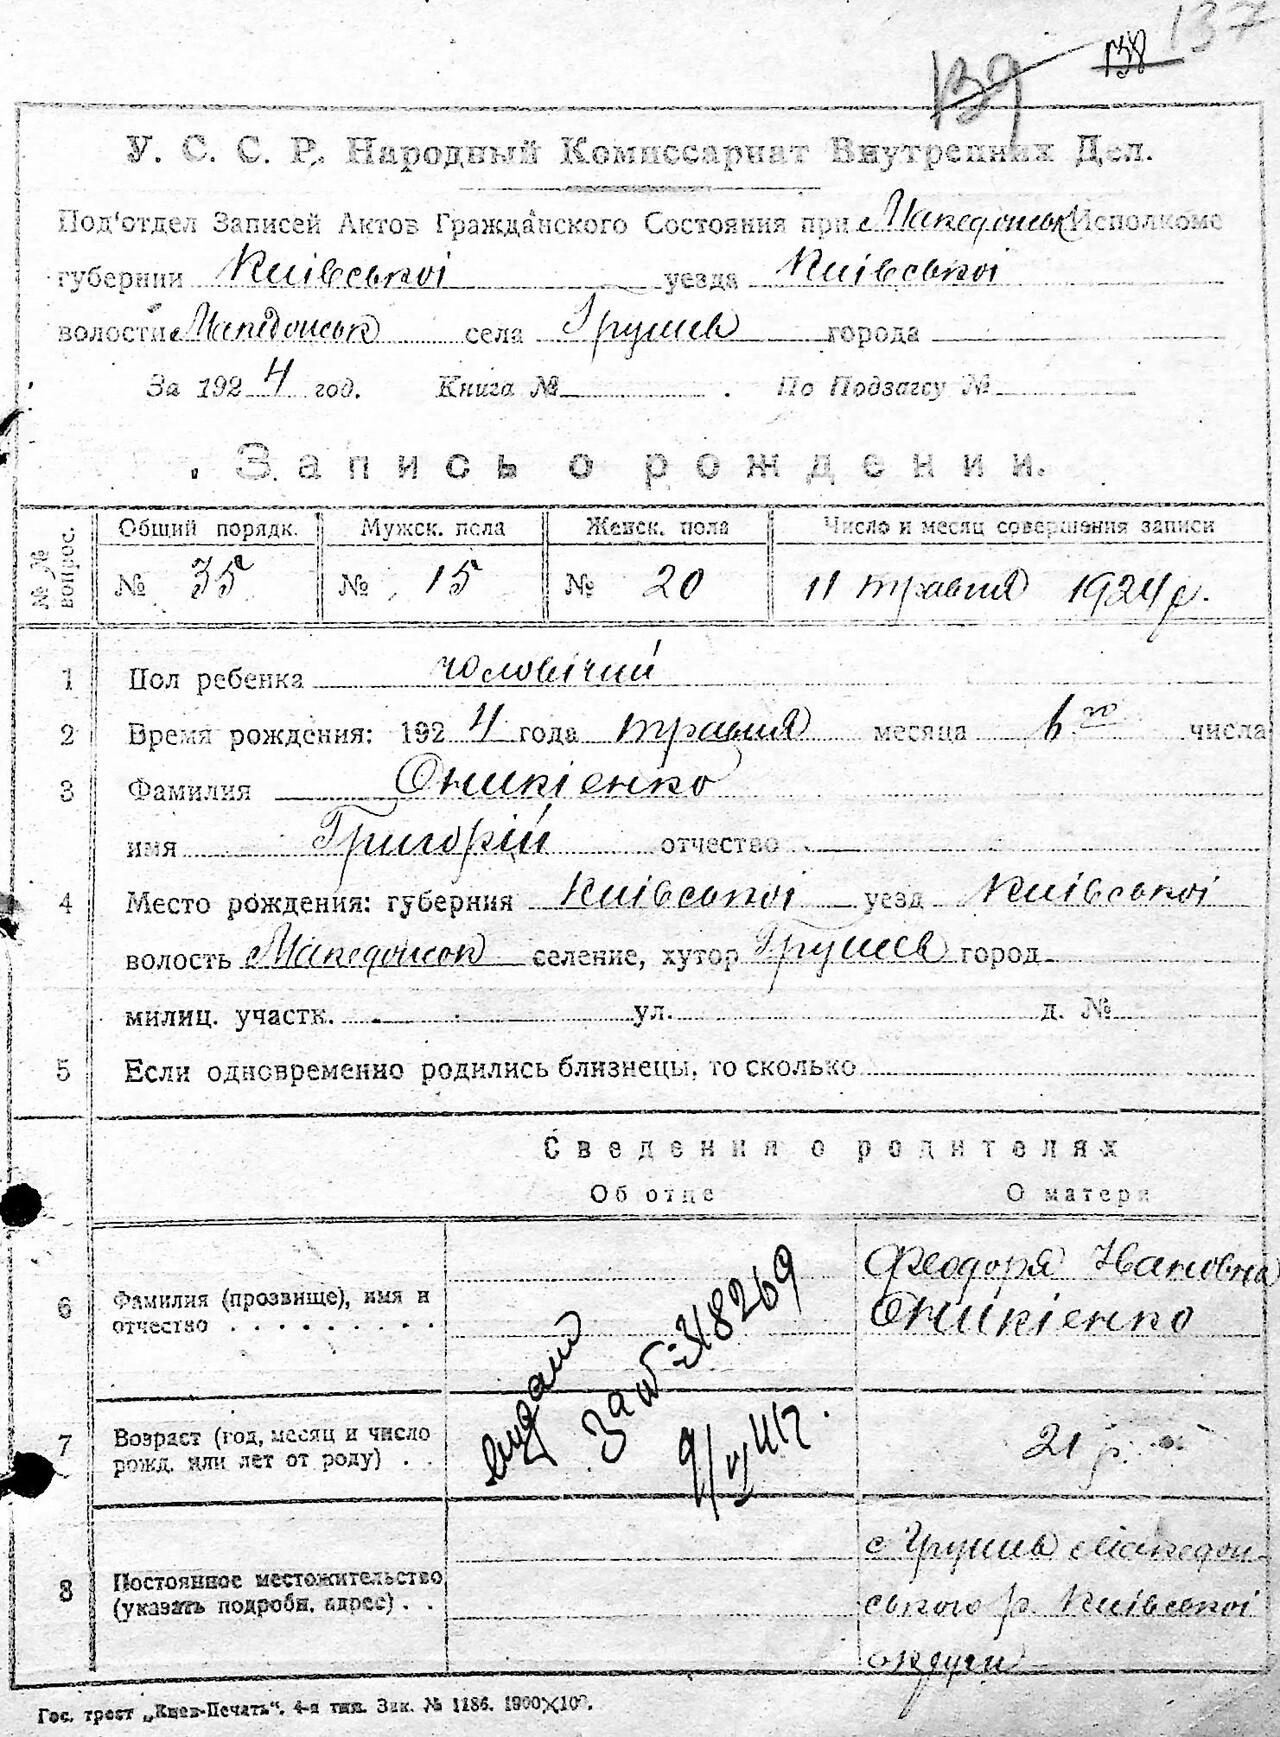 137
138
139
У. С. С. Р. Народный Комиссариат Внутренних Дел.
Под'отдел Записей Актов Гражданского Состояния при Македонськ Исполкоме
губернии Київської уезда Київської
волости Македонськ села Грушев города
За 1924 год. Книга № По Подзагсу №
Запись о рождении.
№№ вопрос. Общий порядк. Мужск. пола Женск. пола Число и месяц совершения записи
№ 35 № 15 № 20 11 травня 1924 р.
1 Пол ребенка чоловічий
2 Время рождения: 1924 года травня месяца 6го числа
3 Фамилия Оникієнко
имя Григорій отчество
4 Место рождения: губерния Київської уезд Київської
волость Македонськ селение, хутор Грушев город
милиц. участк. ул. д. №
5 Если одновременно родились близнецы, то сколько
Сведения о родителях
Об отце О матери
Феодоря Ивановна
6 Фамилия (прозвище), имя и
отчество Оникієнко
видано
За № 318269
7 Возраст (год, месяц и число
рожд. или лет от роду) 21 р.
с Грушев Македон-
8 Постоянное местожительство
(указать подробн. адрес) ського р. Київської
округи
Гос. трест „Киев-Печать“. 4-я тип. Зак. № 1186.